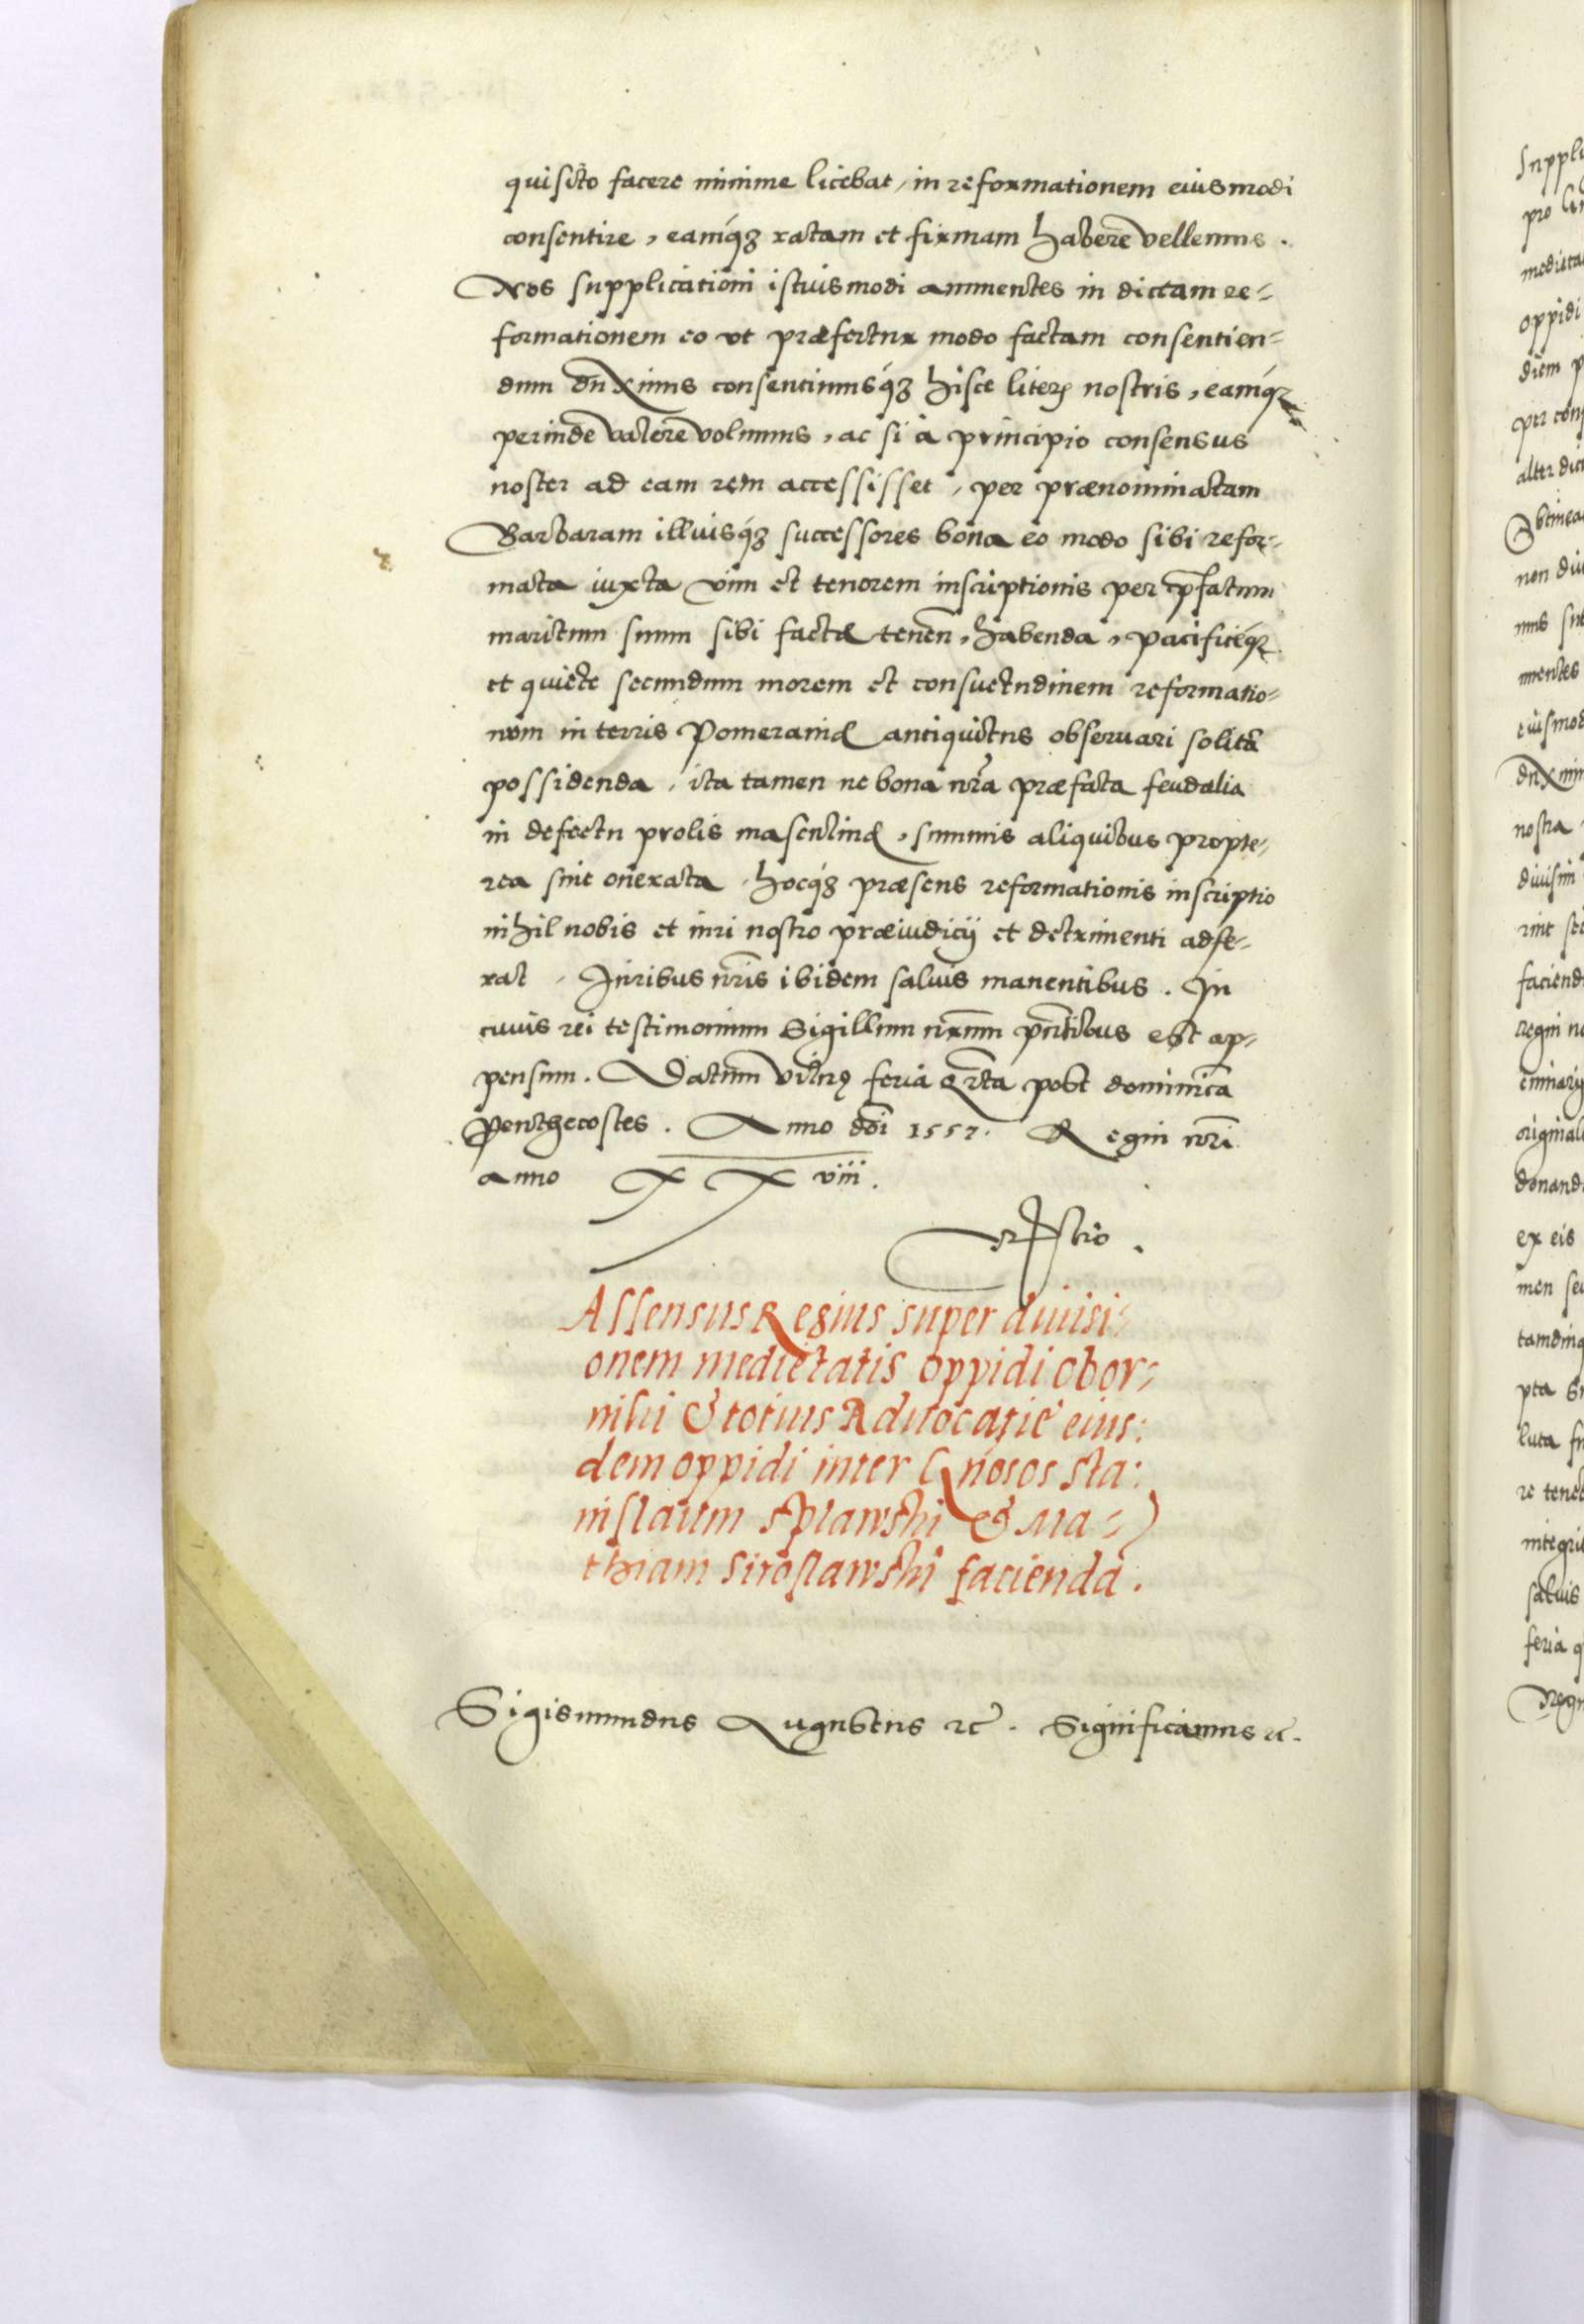 quisito facere minime licebat, in reformationem eiusmodi
consentire, eamq́ꝫ ratam et firmam habere vellemus.
Nos supplicationi istiusmodi annuentes in dictam re-
formationem eo vt præfertur modo factam consentien-
dum duximus consentimusq́ꝫ hisce literis nostris, eamq́ꝫ
perinde valere volumus, ac si à principio consensus
noster ad eam rem accessisset, per prænominatam
Barbaram illiusq́ꝫ successores bona eo modo sibi refor-
mata iuxta vim et tenorem inscriptionis per p̄fatum
maritum suum sibi factæ tenen̄, habenda, pacificéqꝫ
et quiete secundum morem et consuetudinem reformatio-
num in terris Pomeraniæ antiquitus observari solitā
possidenda, ita tamen ne bona nr̄a præfata feudalia
in defectu prolis masculinæ, summis aliquibus propte-
rea sint onerata. hocq́ꝫ præsens reformationis inscriptio
nihil nobis et iuri nostro præiudicij et detrimenti adfe-
rat. Iuribus nr̄is ibidem salvis manentibus. In
cuius rei testimonium Sigillum nr̄um pn̄tibus est ap-
pensum. Datum Vilnę feria qr̄ta post dominicā
Penthecostes. Anno dn̄i 1557. Regni nr̄i
anno XXviii.
Assensus Regius super diuisi-
onem medietatis oppidi obor-
niki & totius Aduocatie eius:
dem oppidi inter Gn̄osos sta:
nislaum Splawski & Ma-
thiam Siroslawski facienda.
Sigismundus Augustus ꝛc̄. Significamus ꝛc̄.
Suppli
pro
medieta
oppidi
diem p
per con
alter dic
Obtinea
non diu
mus su
nuentes
eiusmod
duxim
nostra
diuisim
rint
faciend
regni n
original
donand
ex eis
men se
tamdiu
pta
luta
re tene
integri
saluis
feria q
Regn